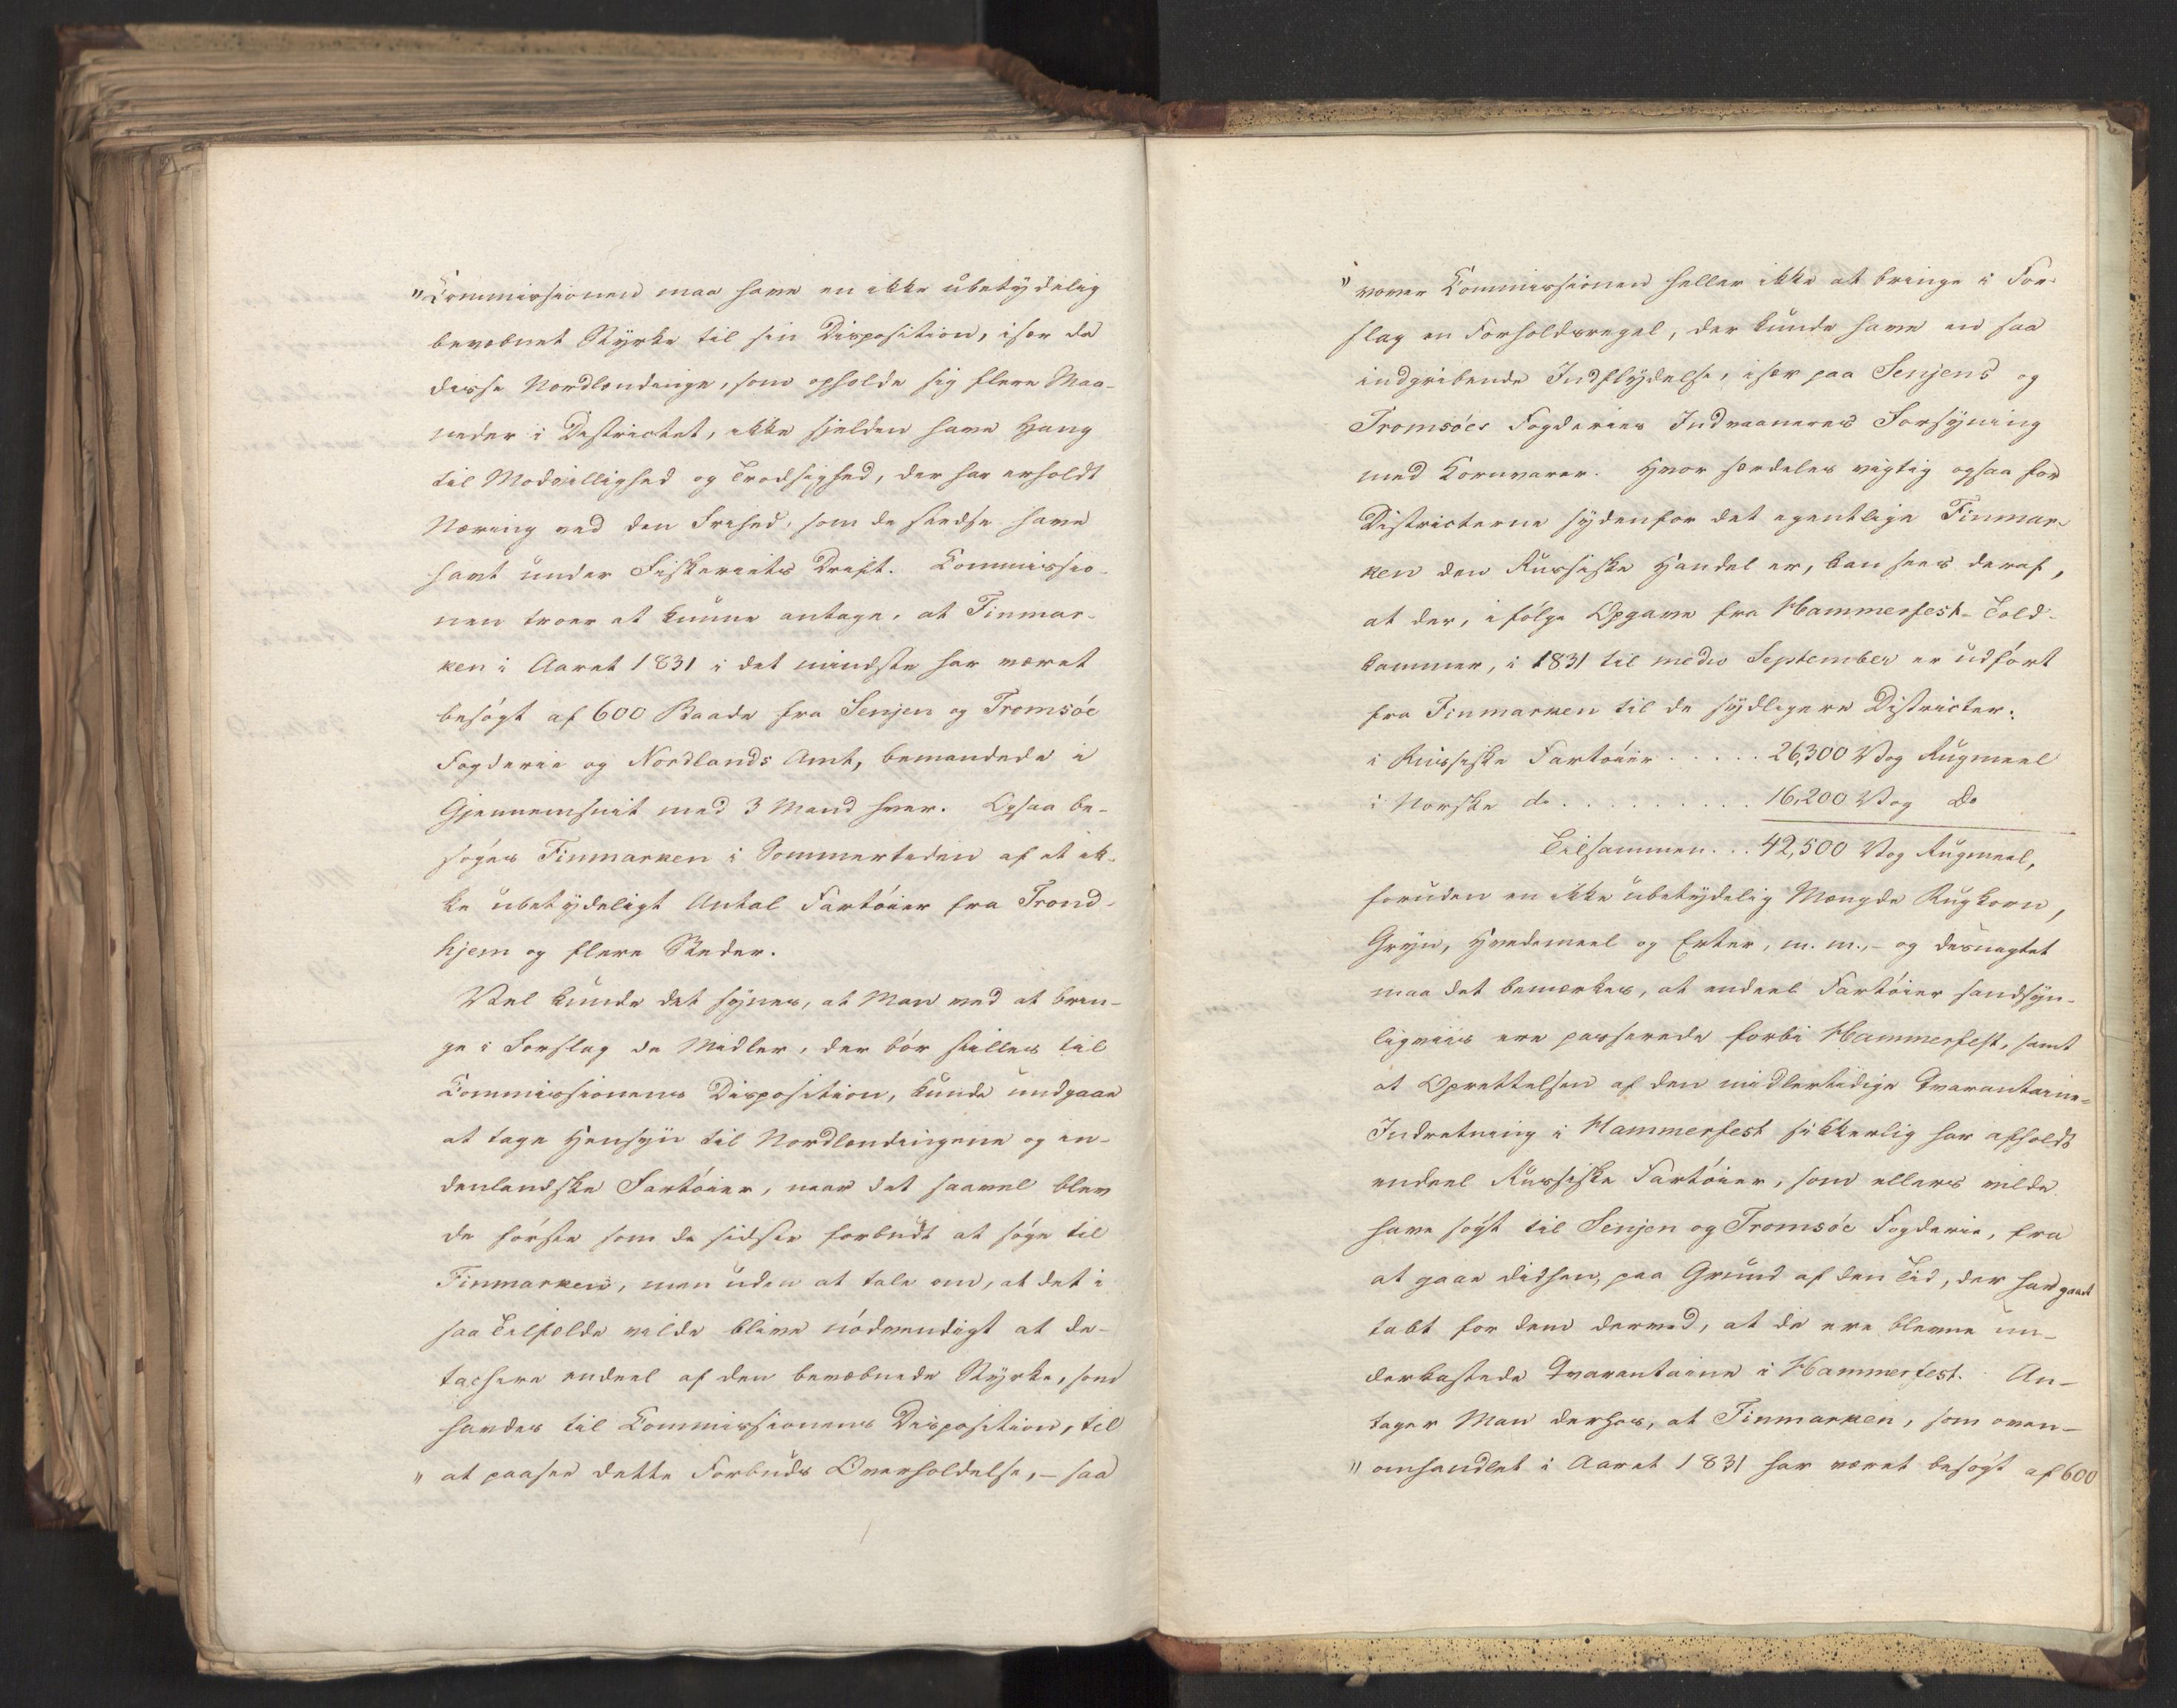 "Commissionen maa have en ikke ubetydelig
bevæbnet Styrke til sin Disposition, især da
disse Nordlændinge, som opholde sig flere Maa-
neder i Districtet, ikke sjelden have Hang
til Modvillighed og Trodsighed, der har erholdt
Næring ved den Frihed, som de stedse have
havt under Fiskeriets Drift. Commissio-
nen troer at kunne antage, at Finmar-
ken i Aaret 1831 i det mindste har været
besögt af 600 Baade fra Senjen og Tromsöe
Fogderie og Nordlands Amt, bemandede i
Gjennemsnit med 3 Mand hver. Ogsaa be-
söges Finmarken i Sommertiden af et ik-
ke ubetydeligt Antal Fartöier fra Trond-
hjem og flere Steder.
Vel kunde det synes, at Man ved at brin-
ge i Forslag de Midler, der bör stilles til
Commissionens Disposition, kunde undgaae
at tage Hensyn til Nordlændingene og in-
denlandske Fartöier, naar det saavel blev
de förste som de sidste forbudt at söge til
Finmarken, men uden at tale om, at det i
saa Tilfælde vilde blive nödvendigt at de-
tachere endeel af den bevæbnede Styrke, som
havdes til Commissionens Disposition, til
" at paasee dette Forbuds Overholdelse, – saa
" vover Commissionen heller ikke at bringe i For-
slag en Forholdsregel, der kunde have en saa
indgribende Indflydelse, især paa Senjens og
Tromsöes Fogderies Indvaaneres Forsyning
med Kornvarer. Hvor særdeles vigtig ogsaa for
Districterne sydenfor det egentlige Finmar-
ken den Russiske Handel er, kan sees deraf,
at der, ifölge Opgave fra Hammerfest-Told-
kammer, i 1831 til medio September er udfört
fra Finmarken til de sydligere Districter:
i Russiske Fartöier . . . . . 26,300 Vog Rugmeel
i Norske do . . . . . . . . . . 16,200 Vog Do
Tilsammen. . . 42,500 Vog Rugmeel,
foruden en ikke ubetydelig Mængde Rugkorn,
Gryn, Hvedemeel og Erter, m. m., – og desuagtet
maa det bemærkes, at endeel Fartöier sandsyn-
ligviis ere passerede forbi Hammerfest, samt
at Oprettelsen af den midlertidige Qvarantaine-
Indretning i Hammerfest sikkerlig har afholdt
endeel Russiske Fartöier, som ellers vilde
have sögt til Senjen og Tromsöe Fogderie, fra
at gaae didhen, paa Grund af den Tid, der har gaaet
tabt for dem derved, at de ere blevne un-
derkastede Qvarantaine i Hammerfest. An-
tager Man derhos, at Finmarken, som oven-
" omhandlet i Aaret 1831 har været besögt af 600